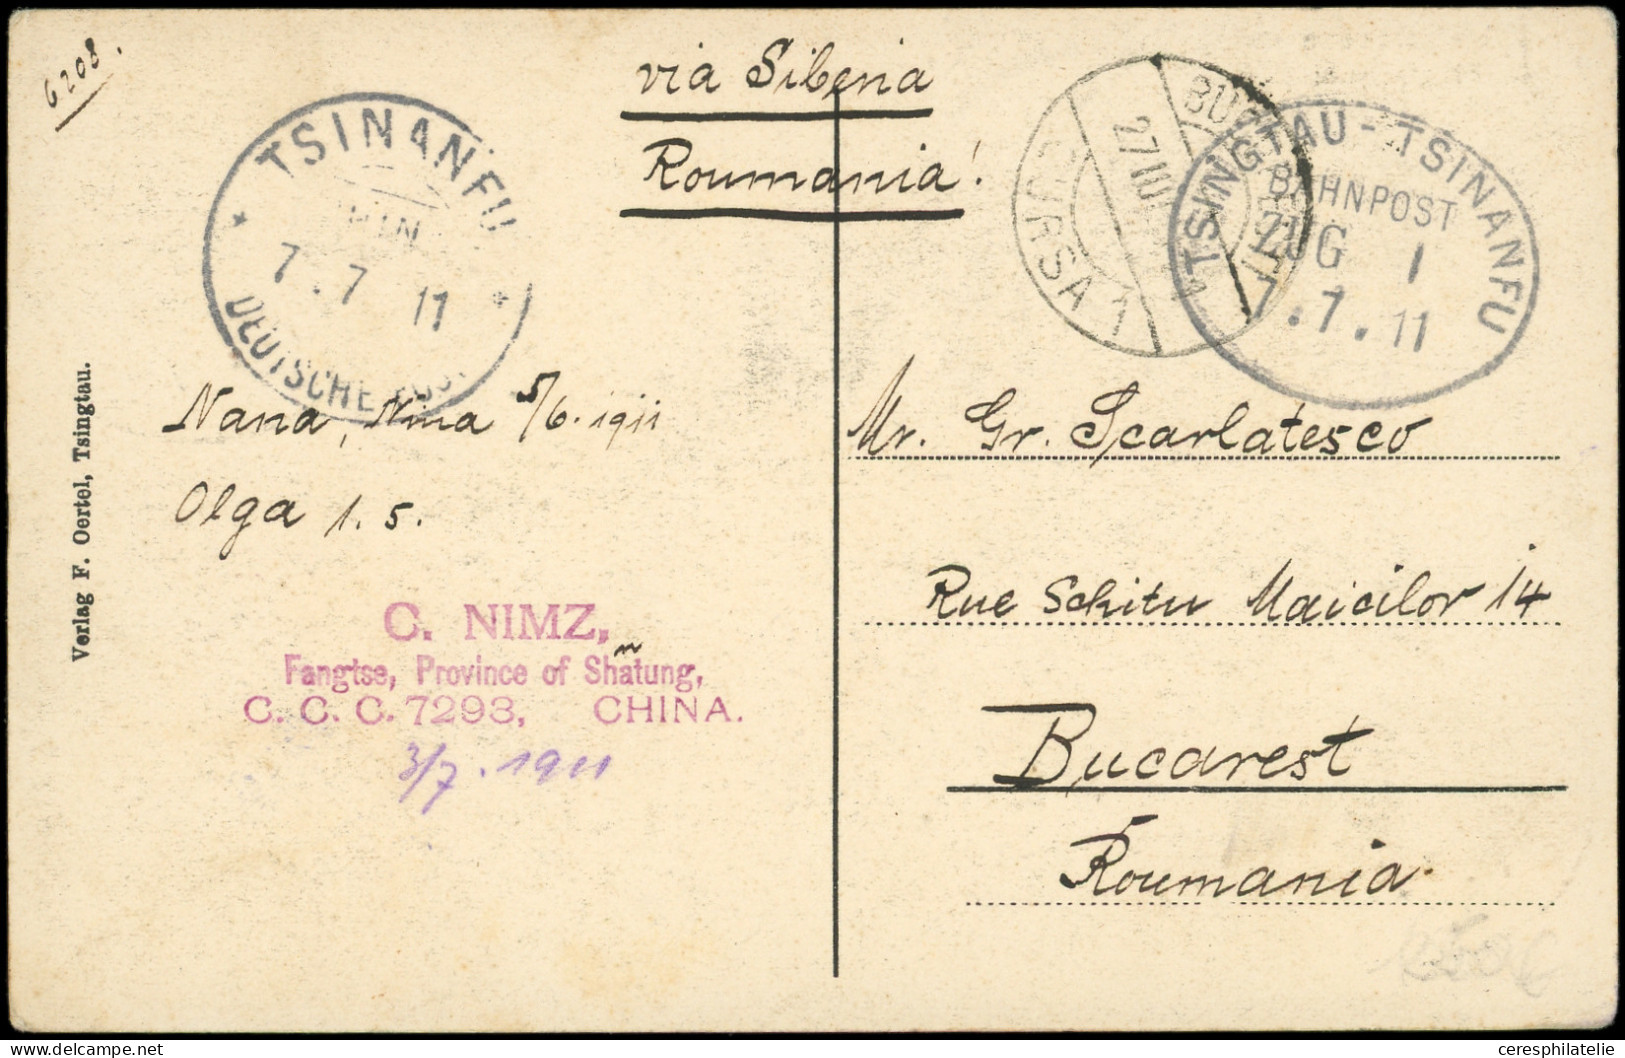 6208.
via Siberia
Roumania!
TSINANFU
7.7 11
DEUTSCHE
27 III
CURSA 1
TSINGTAU - TSINANFU
BAHNPOST
ZUG 1
7.7.11
Nana, Nina 5/6. 1911
Olga 1. 5.
C. NIMZ,
n
Fangtse, Province of Shatung,
C. C. C. 7293, CHINA.
3/7. 1911
Mr. Gr. Scarlatesco
Rue Schitu Maicilor 14
Bucarest
Roumania.
Verlag F. Oertel, Tsingtau.
ceresphilatelie